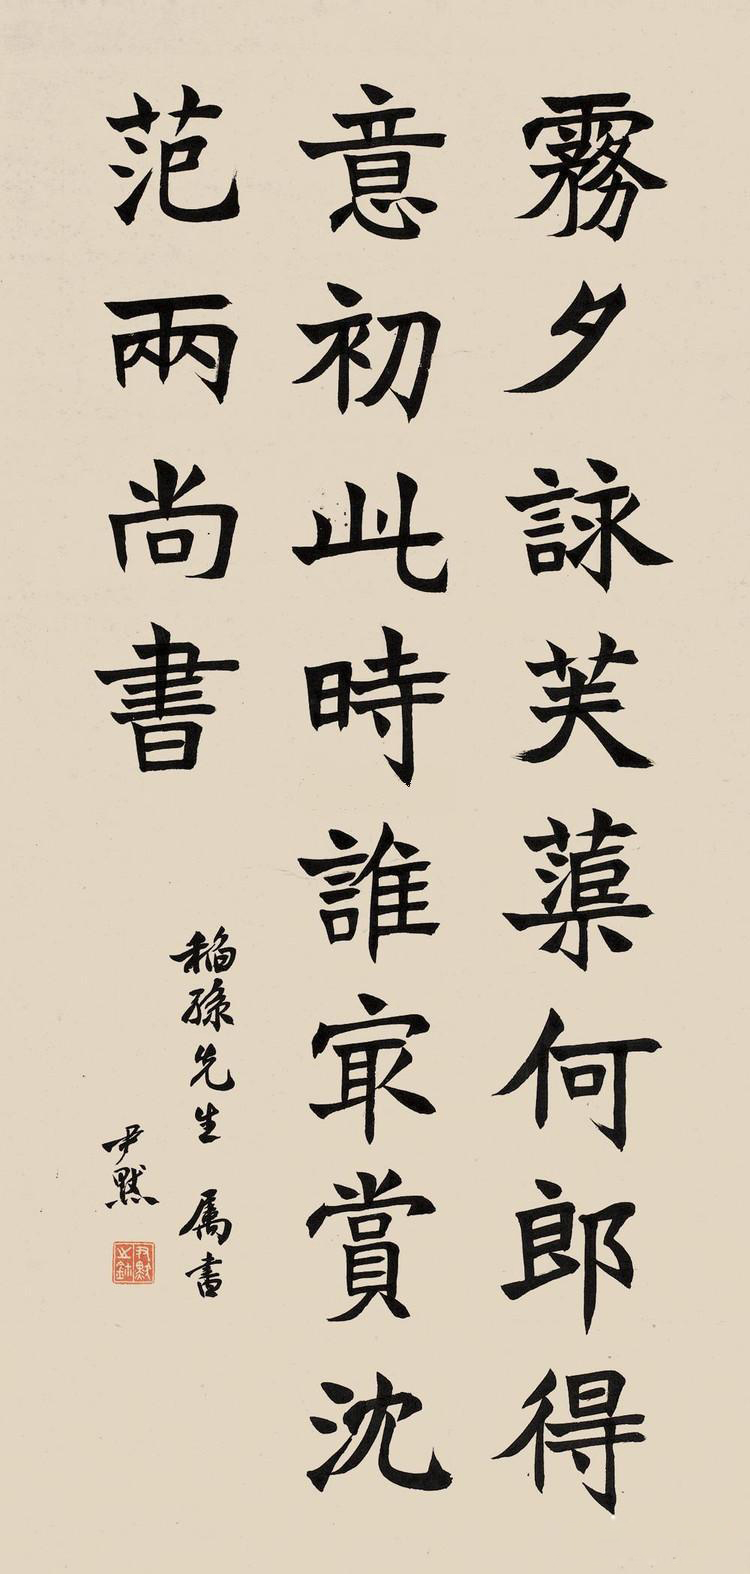 霧夕詠芙蕖何郎得
意初此時誰㝡賞沈
范兩尚書
稻孫先生 属書
尹默
尹默之鉨